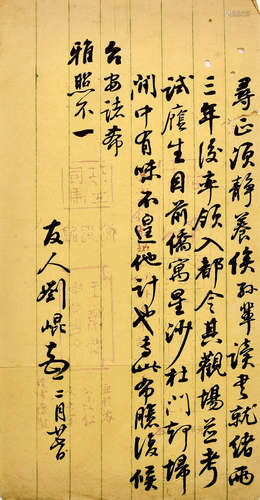 尋正須靜養俟孫輩讀書就緒兩
三年後率領入都令其觀場並考
試廕生目前僑寓星沙杜門卻埽
閒中有味不遑他計也專此布臆復候
台安諸希
雅照不一
友人劉崐 二月廿